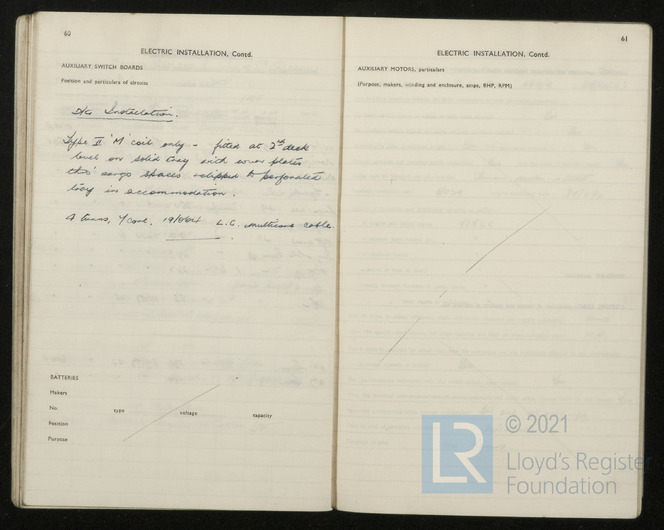 60
ELECTRIC INSTALLATION, Contd.
AUXILIARY SWITCH BOARDS
Position and particulars of circuits
Installation.
Type II 'M' coil only - fitted at 2nd deck
level on solid tray with cover plates
thro' cargo spaces & clipped to perforated
tray in accommodation.
4 turns, 19/.064 L.C. multicore cable.
BATTERIES
Makers
No: type voltage capacity
Position
Purpose
61
ELECTRIC INSTALLATION, Contd.
AUXILIARY MOTORS, particulars
(Purpose, makers, winding and enclosure, amps, BHP, RPM)
LR
© 2021
Lloyd's Register
Foundation